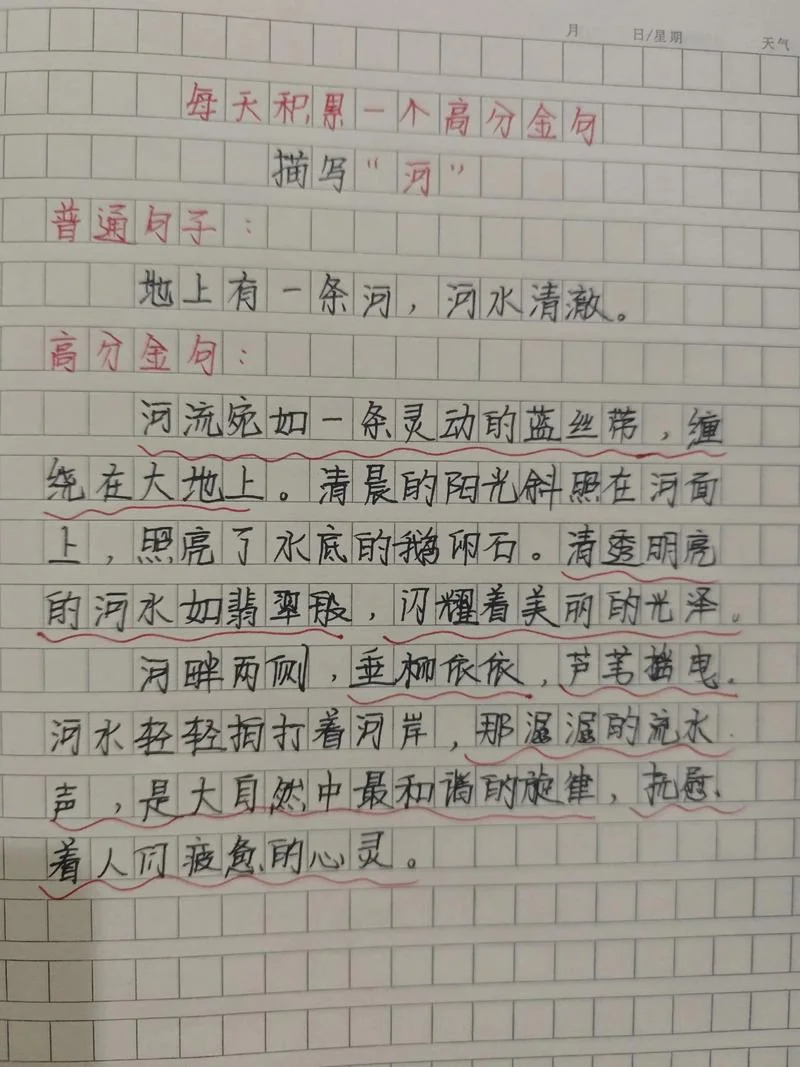 月 日/星期 天气
每天积累一个高分金句
描写“河”
普通句子:
地上有一条河,河水清澈。
高分金句:
河流宛如一条灵动的蓝丝带,缠
绕在大地上。清晨的阳光斜照在河面
上,照亮了水底的鹅卵石。清透明亮
的河水如翡翠般,闪耀着美丽的光泽。
河畔两侧,垂柳依依,芦苇
河水轻轻拍打着河岸,那潺潺的流水
声,是大自然中最和谐的旋律,抚慰
着人们疲惫的心灵。